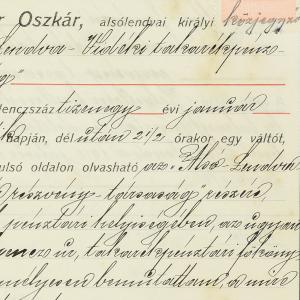 r Oszkár, alsólendvai királyi közjegyző
Lendva-Vidéki takarékpénz-
ag"
lenczszáz tizenegy évi január
napján, dél után 2 1/2 órakor egy váltót,
ulsó oldalon olvasható, az „Alsó Lendva
részvény-társaság" részére,
pénztári helyiségében, az ugyan
nevez ur, takarékpénztári főköny
mélyesen bemutattam, a mire